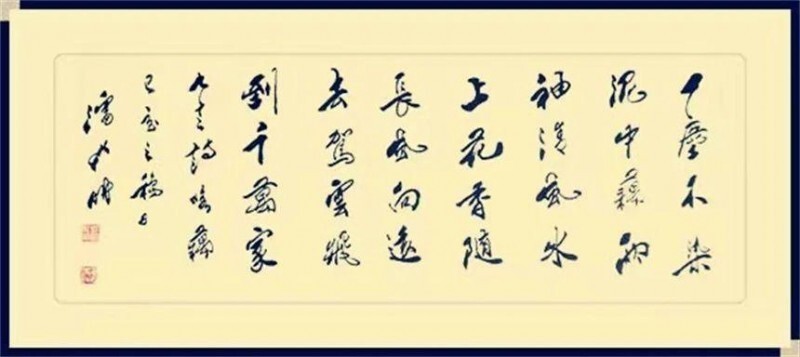 寸塵不染
泥中藕兩
袖清風水
上花香隨
長風向遠
去駕雲飛
到千萬家
詩咏藕
己亥之